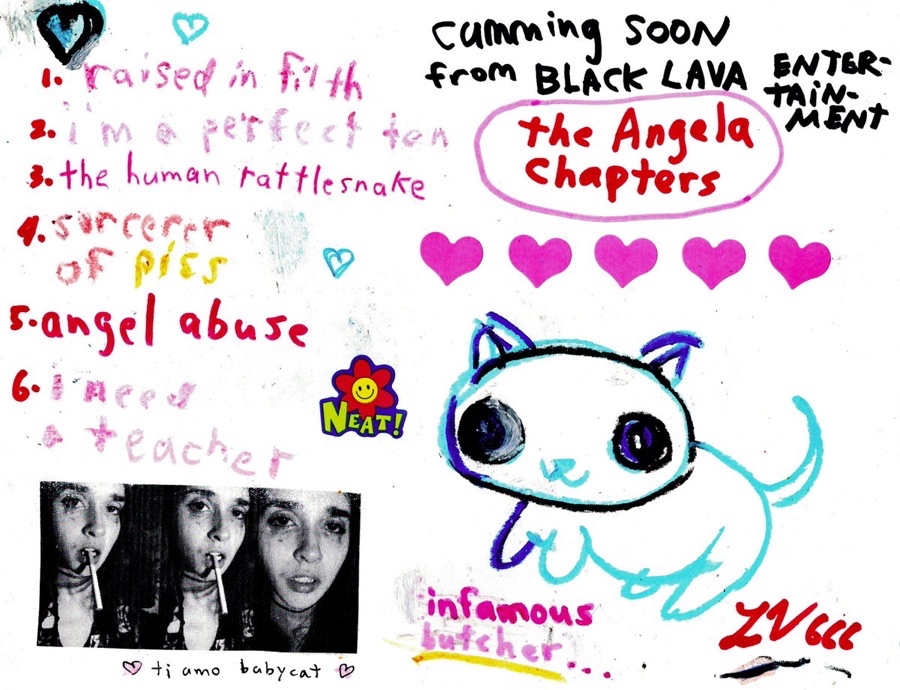 1. raised in filth
2. i'm a perfect ten
3. the human rattlesnake
4. sorcerer
of piss
5. angel abuse
6. i need
a teacher
NEAT!
♡ ti amo babycat ♡
cumming SOON
from BLACK LAVA ENTER-
TAIN-
MENT
the Angela
Chapters
infamous
butcher...
LV666